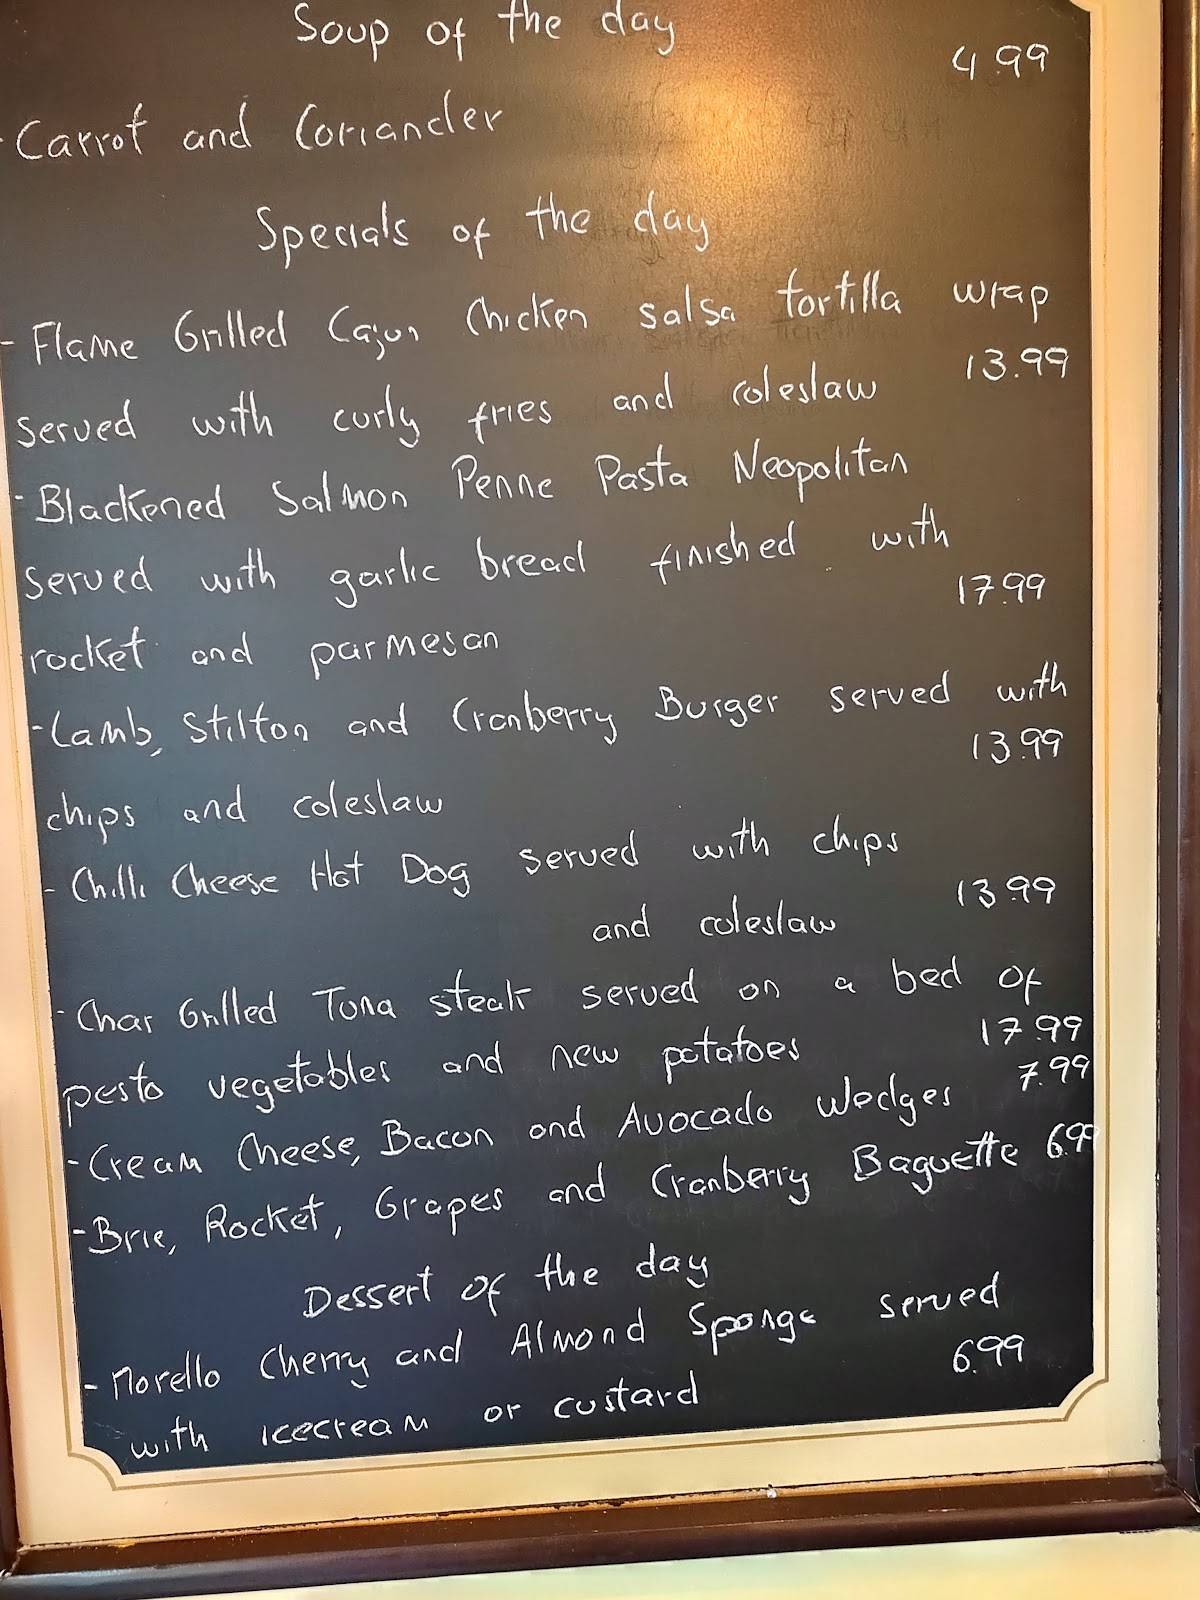 Soup of the day
4.99
- Carrot and Coriander
Specials of the day
- Flame Grilled Cajun Chicken salsa tortilla wrap
served with curly fries and coleslaw 13.99
- Blackened Salmon Penne Pasta Neopolitan
served with garlic bread finished with
rocket and parmesan 17.99
- Lamb, Stilton and Cranberry Burger served with
chips and coleslaw 13.99
- Chilli Cheese Hot Dog served with chips
and coleslaw 13.99
- Char Grilled Tuna steak served on a bed of
pesto vegetables and new potatoes 17.99
- Cream Cheese, Bacon and Avocado Wedges 7.99
- Brie, Rocket, Grapes and Cranberry Baguette 6.99
Dessert of the day
- Morello Cherry and Almond Sponge served
with icecream or custard 6.99